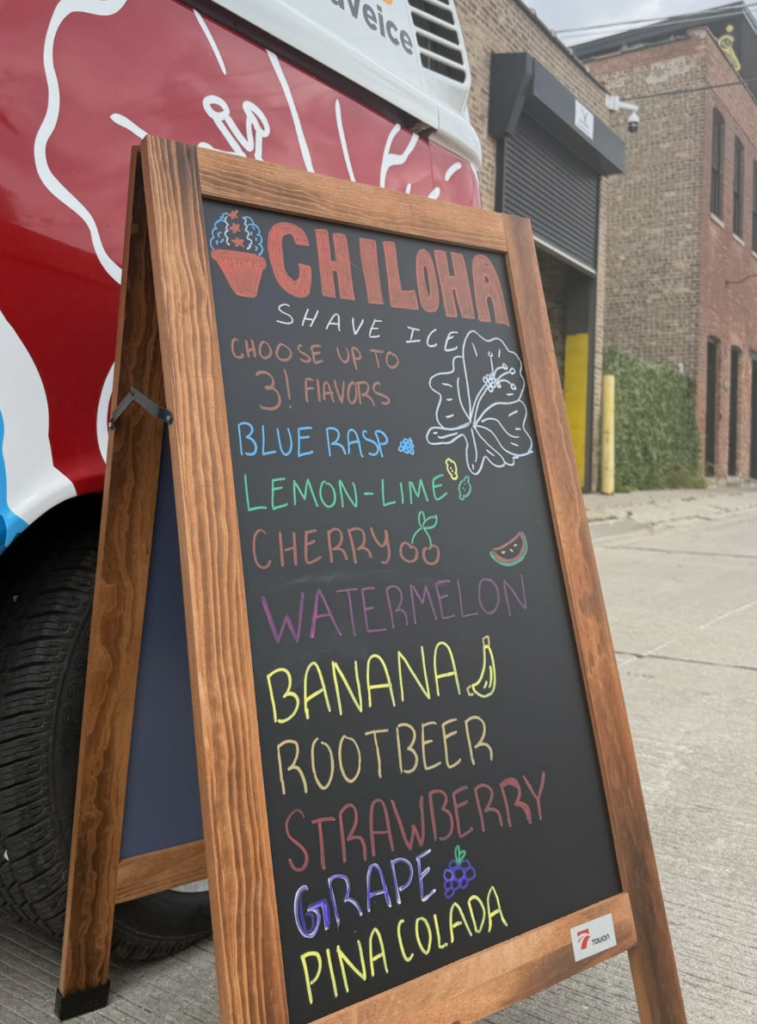 aveice
CHILOHA
SHAVE ICE
CHOOSE UP TO
3! FLAVORS
BLUE RASP
LEMON-LIME
CHERRY
WATERMELON
BANANA
ROOTBEER
STRAWBERRY
GRAPE
PINA COLADA
TOWON